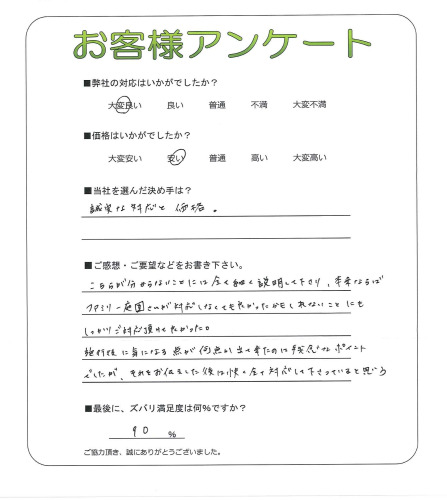 お客様アンケート
■弊社の対応はいかがでしたか？
大変良い　良い　普通　不満　大変不満
■価格はいかがでしたか？
大変安い　安い　普通　高い　大変高い
■当社を選んだ決め手は？
誠実な対応と価格。
■ご感想・ご要望などをお書き下さい。
こちらが分からないことには全て細く説明して下さり、本来ならば
ファミリー庭園さんが対応しなくても良かったかもしれないことにも
しっかりご対応頂けて良かった。
施行後に気になる点が何点か出て来たのは残念なポイント
でしたが、それをお伝えした後は快く全て対応して下さっていると思う
■最後に、ズバリ満足度は何%ですか？
90 %
ご協力頂き、誠にありがとうございました。